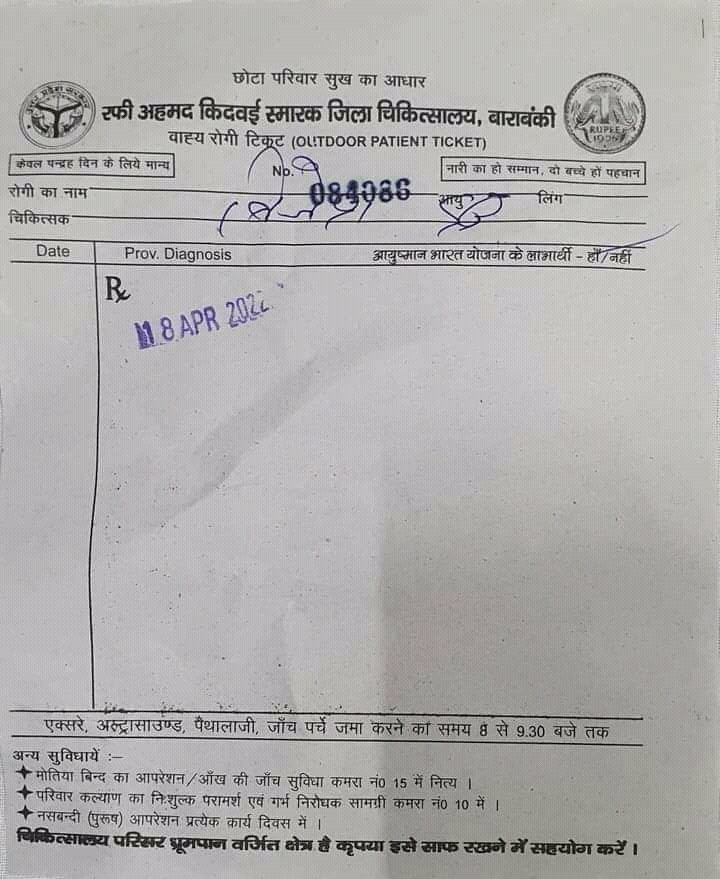 छोटा परिवार सुख का आधार
रफी अहमद किदवई स्मारक जिला चिकित्सालय, बाराबंकी
वाह्य रोगी टिकट (OUTDOOR PATIENT TICKET)
केवल पन्द्रह दिन के लिये मान्य No. 084086 नारी का हो सम्मान, दो बच्चे हों पहचान
रोगी का नाम आयु लिंग
चिकित्सक
Date Prov. Diagnosis आयुष्मान भारत योजना के लाभार्थी - हाँ/नहीं
Rx
18 APR 2022
एक्सरे, अल्ट्रासाउण्ड, पैथालाजी, जाँच पर्चे जमा करने का समय 8 से 9.30 बजे तक
अन्य सुविधायें :–
मोतिया बिन्द का आपरेशन/आँख की जाँच सुविधा कमरा नं0 15 में नित्य ।
परिवार कल्याण का निःशुल्क परामर्श एवं गर्भ निरोधक सामग्री कमरा नं0 10 में ।
नसबन्दी (पुरूष) आपरेशन प्रत्येक कार्य दिवस में ।
चिकित्सालय परिसर धूम्रपान वर्जित क्षेत्र है कृपया इसे साफ रखने में सहयोग करें ।